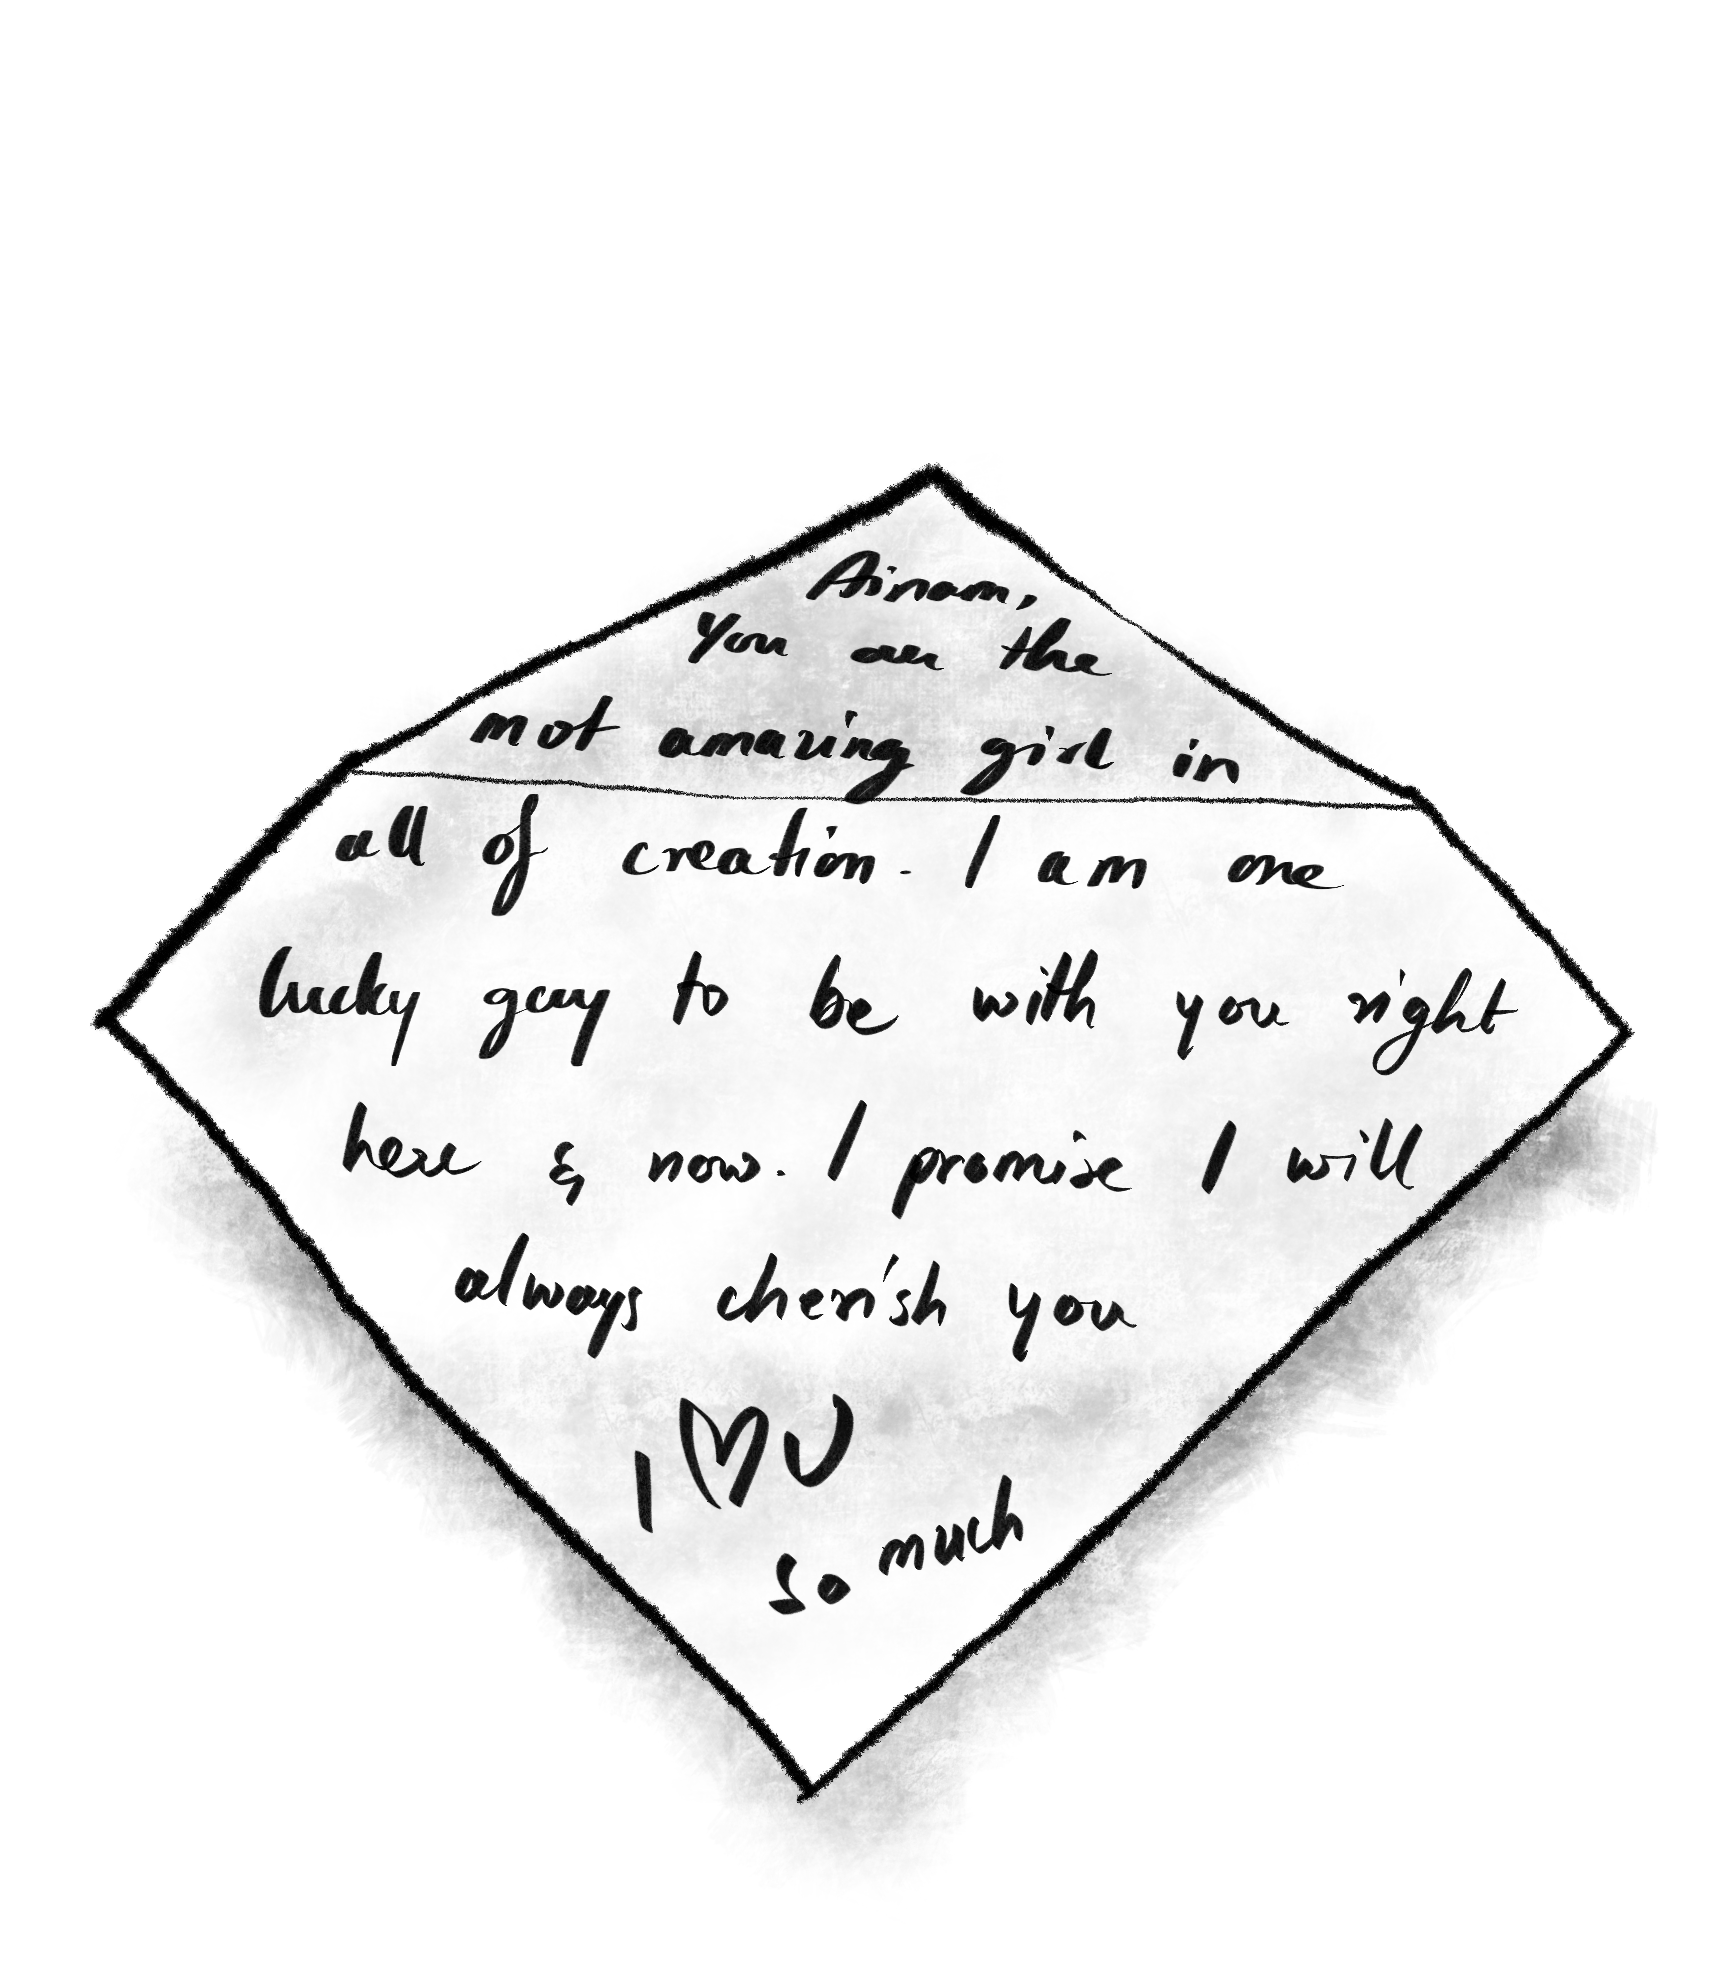 Ainam,
You are the
mot amazing girl in
all of creation. I am one
lucky guy to be with you right
here & now. I promise I will
always cherish you
I ♡ U
so much